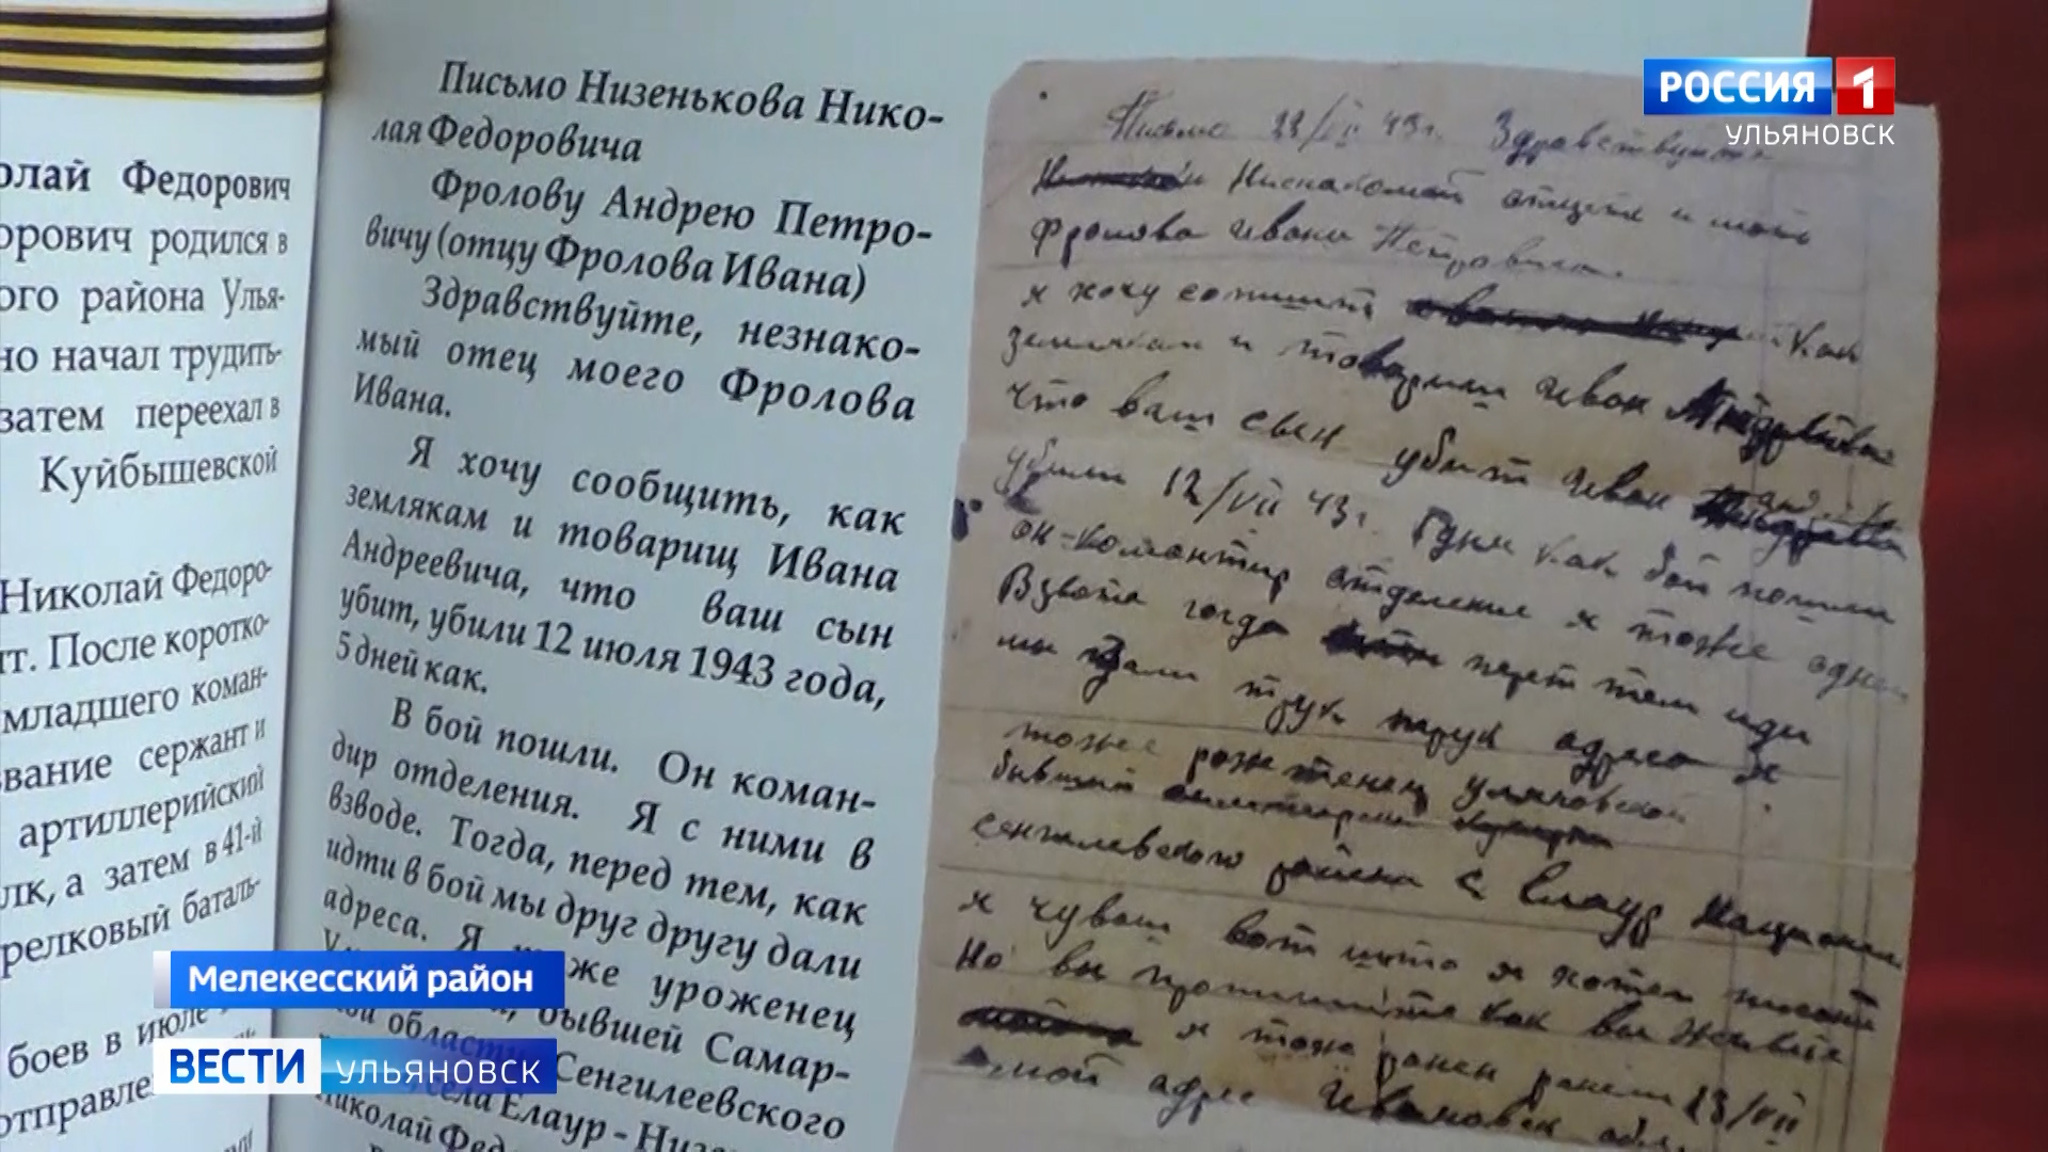 РОССИЯ 1
УЛЬЯНОВСК
олай Федорович
орович родился в
ого района Улья-
но начал трудить-
затем переехал в
Куйбышевской
Николай Федоро-
нт. После коротко-
младшего коман-
звание сержант и
артиллерийский
лк, а затем в 41-й
релковый баталь-
боев в июле
отправле
Письмо Низенькова Нико-
лая Федоровича
Фролову Андрею Петро-
вичу (отцу Фролова Ивана)
Здравствуйте, незнако-
мый отец моего Фролова
Ивана.
Я хочу сообщить, как
землякам и товарищ Ивана
Андреевича, что ваш сын
убит, убили 12 июля 1943 года,
5 дней как.
В бой пошли. Он коман-
дир отделения. Я с ними в
взводе. Тогда, перед тем, как
идти в бой мы друг другу дали
адреса. Я же уроженец
бывшей Самар-
области Сенгилеевского
села Елаур - Низе
Николай Фед
Письмо 22/VII 43 г. Здравствуйте
отец и мать
Фролова Ивана Петровича
я хочу как
землякам и товарищ Иван
что ваш сын убит Иван
убили 12/VII 43 г. 5 дни как бой пошли
он-комантир отделения я тоже
Взвота тогда перет тем иди
мы адреса я
тоже
бывший
сенгилевского района с Елаур
я чуваш вот што я хотел писать
Но вы пропишите как вы живете
я тоже ранен ранели 13/VII
мой адрес Ивановск
Мелекесский район
ВЕСТИ УЛЬЯНОВСК